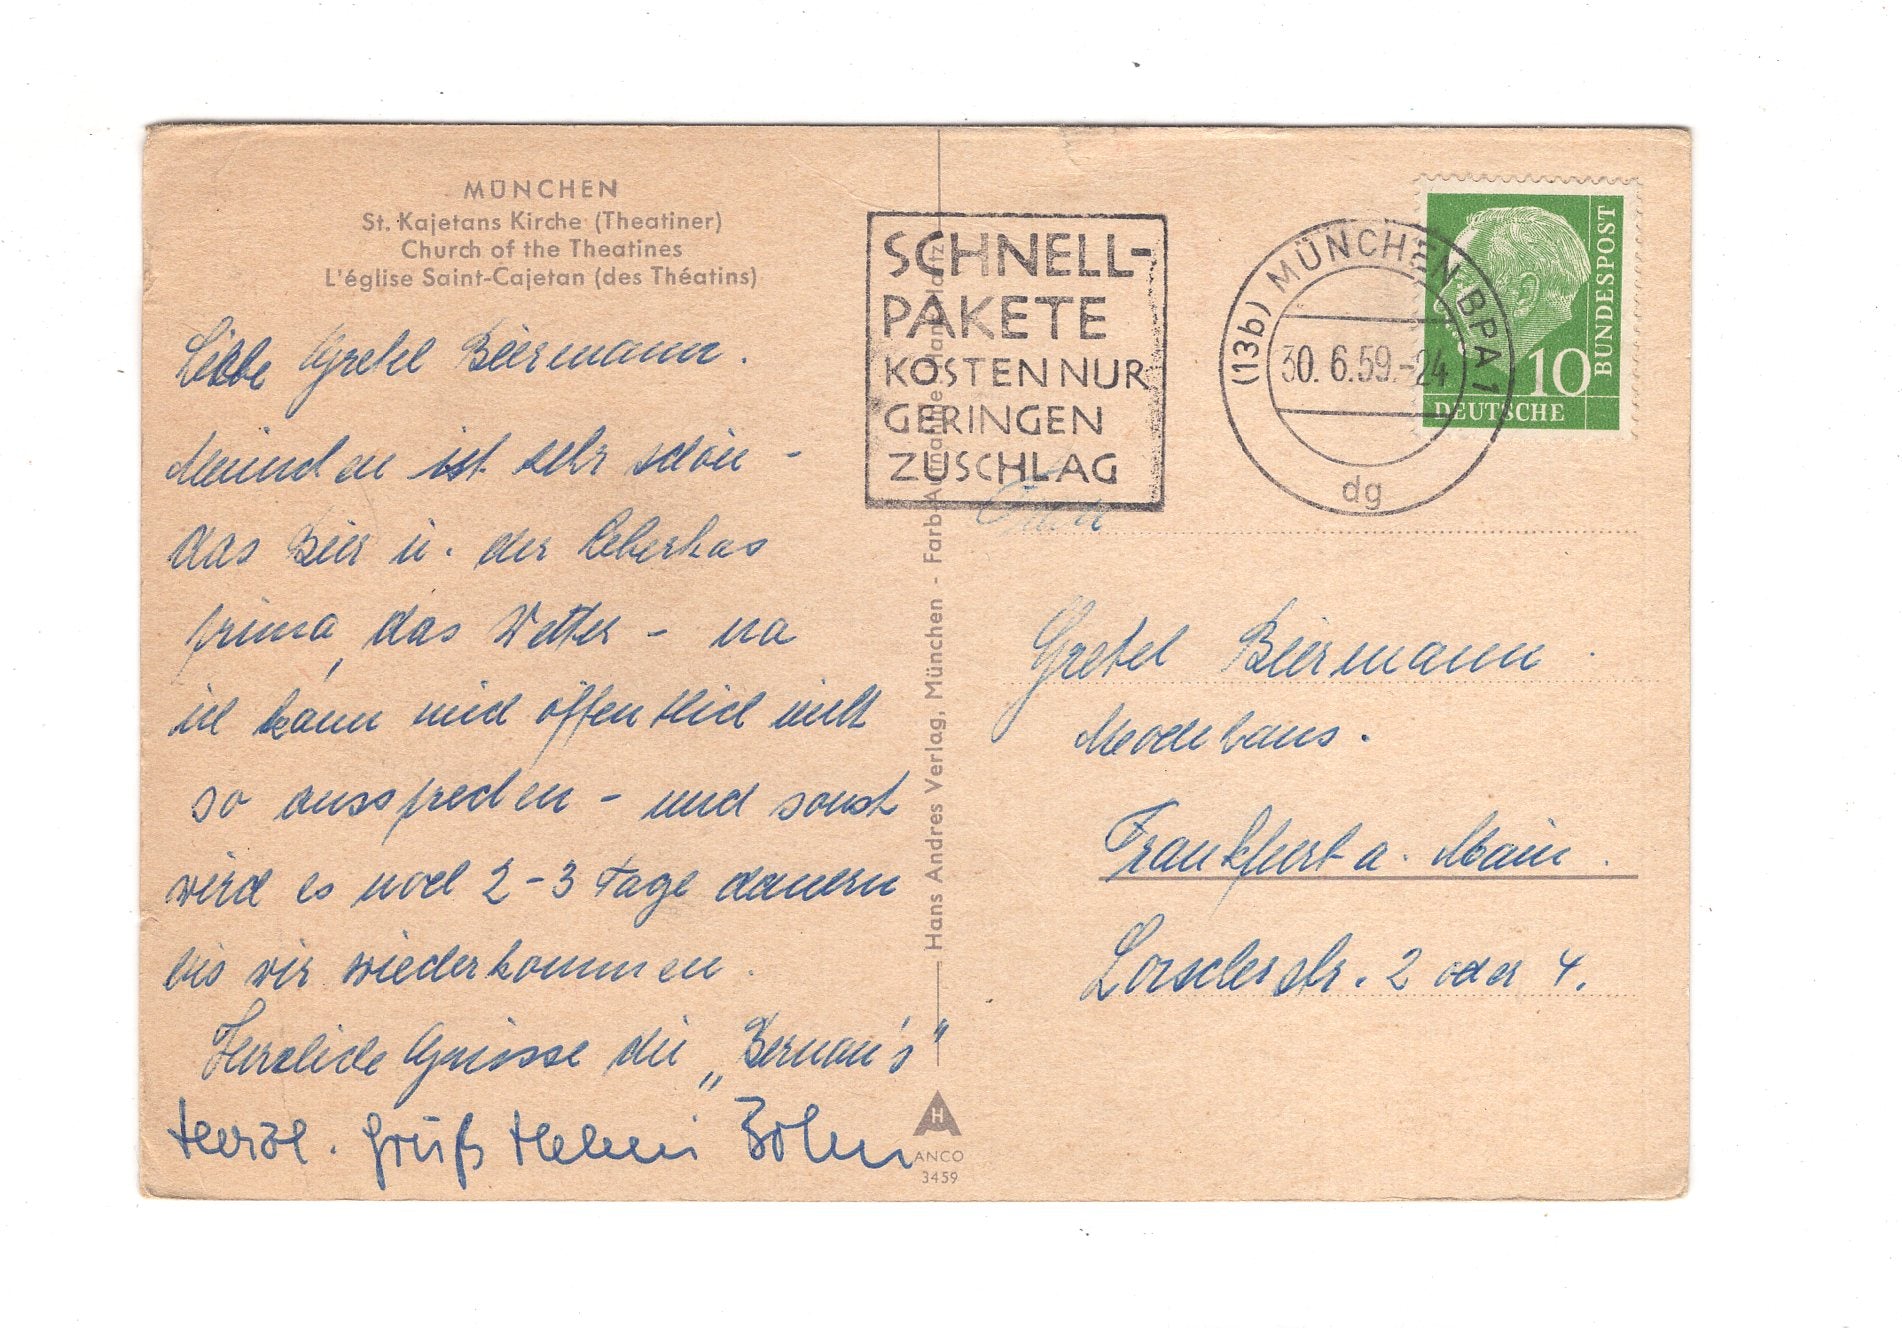 MÜNCHEN
St. Kajetans Kirche (Theatiner)
Church of the Theatines
L'église Saint-Cajetan (des Théatins)
Liebe Gretel Biermann.
München ist sehr schön -
das Bier u. der Leberkas
prima, das Wetter - na
ich kann mich öffentlich nicht
so aussprechen - und sonst
wird es noch 2-3 Tage dauern
bis wir wiederkommen.
Herzliche Grüsse die „Bernau's"
Herzl. Gruß Helmi Böhm
Hans Andres Verlag, München - Farb-Aufnahme:
ANCO
3459
SCHNELL-
PAKETE
KOSTEN NUR
GERINGEN
ZUSCHLAG
(13b) MÜNCHEN BPA 1
30.6.59.-24
dg
10
DEUTSCHE
BUNDESPOST
Gretel Biermann.
Modehaus.
Frankfurt a. Main.
Lorscherstr. 2 oder 4.